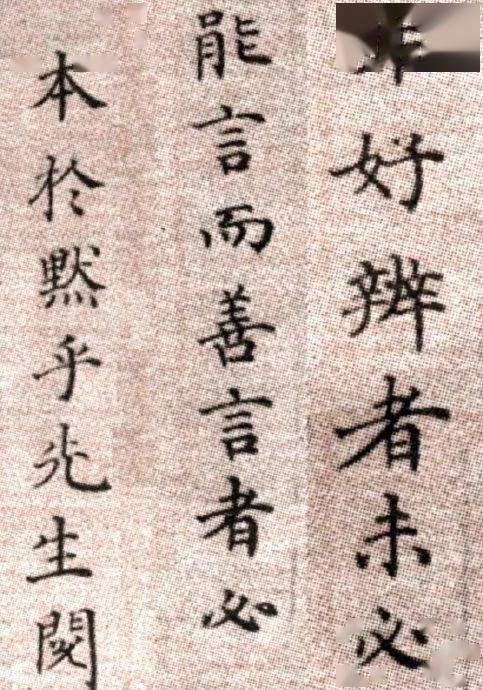 好辨者未必
能言而善言者必
本於默乎先生閔